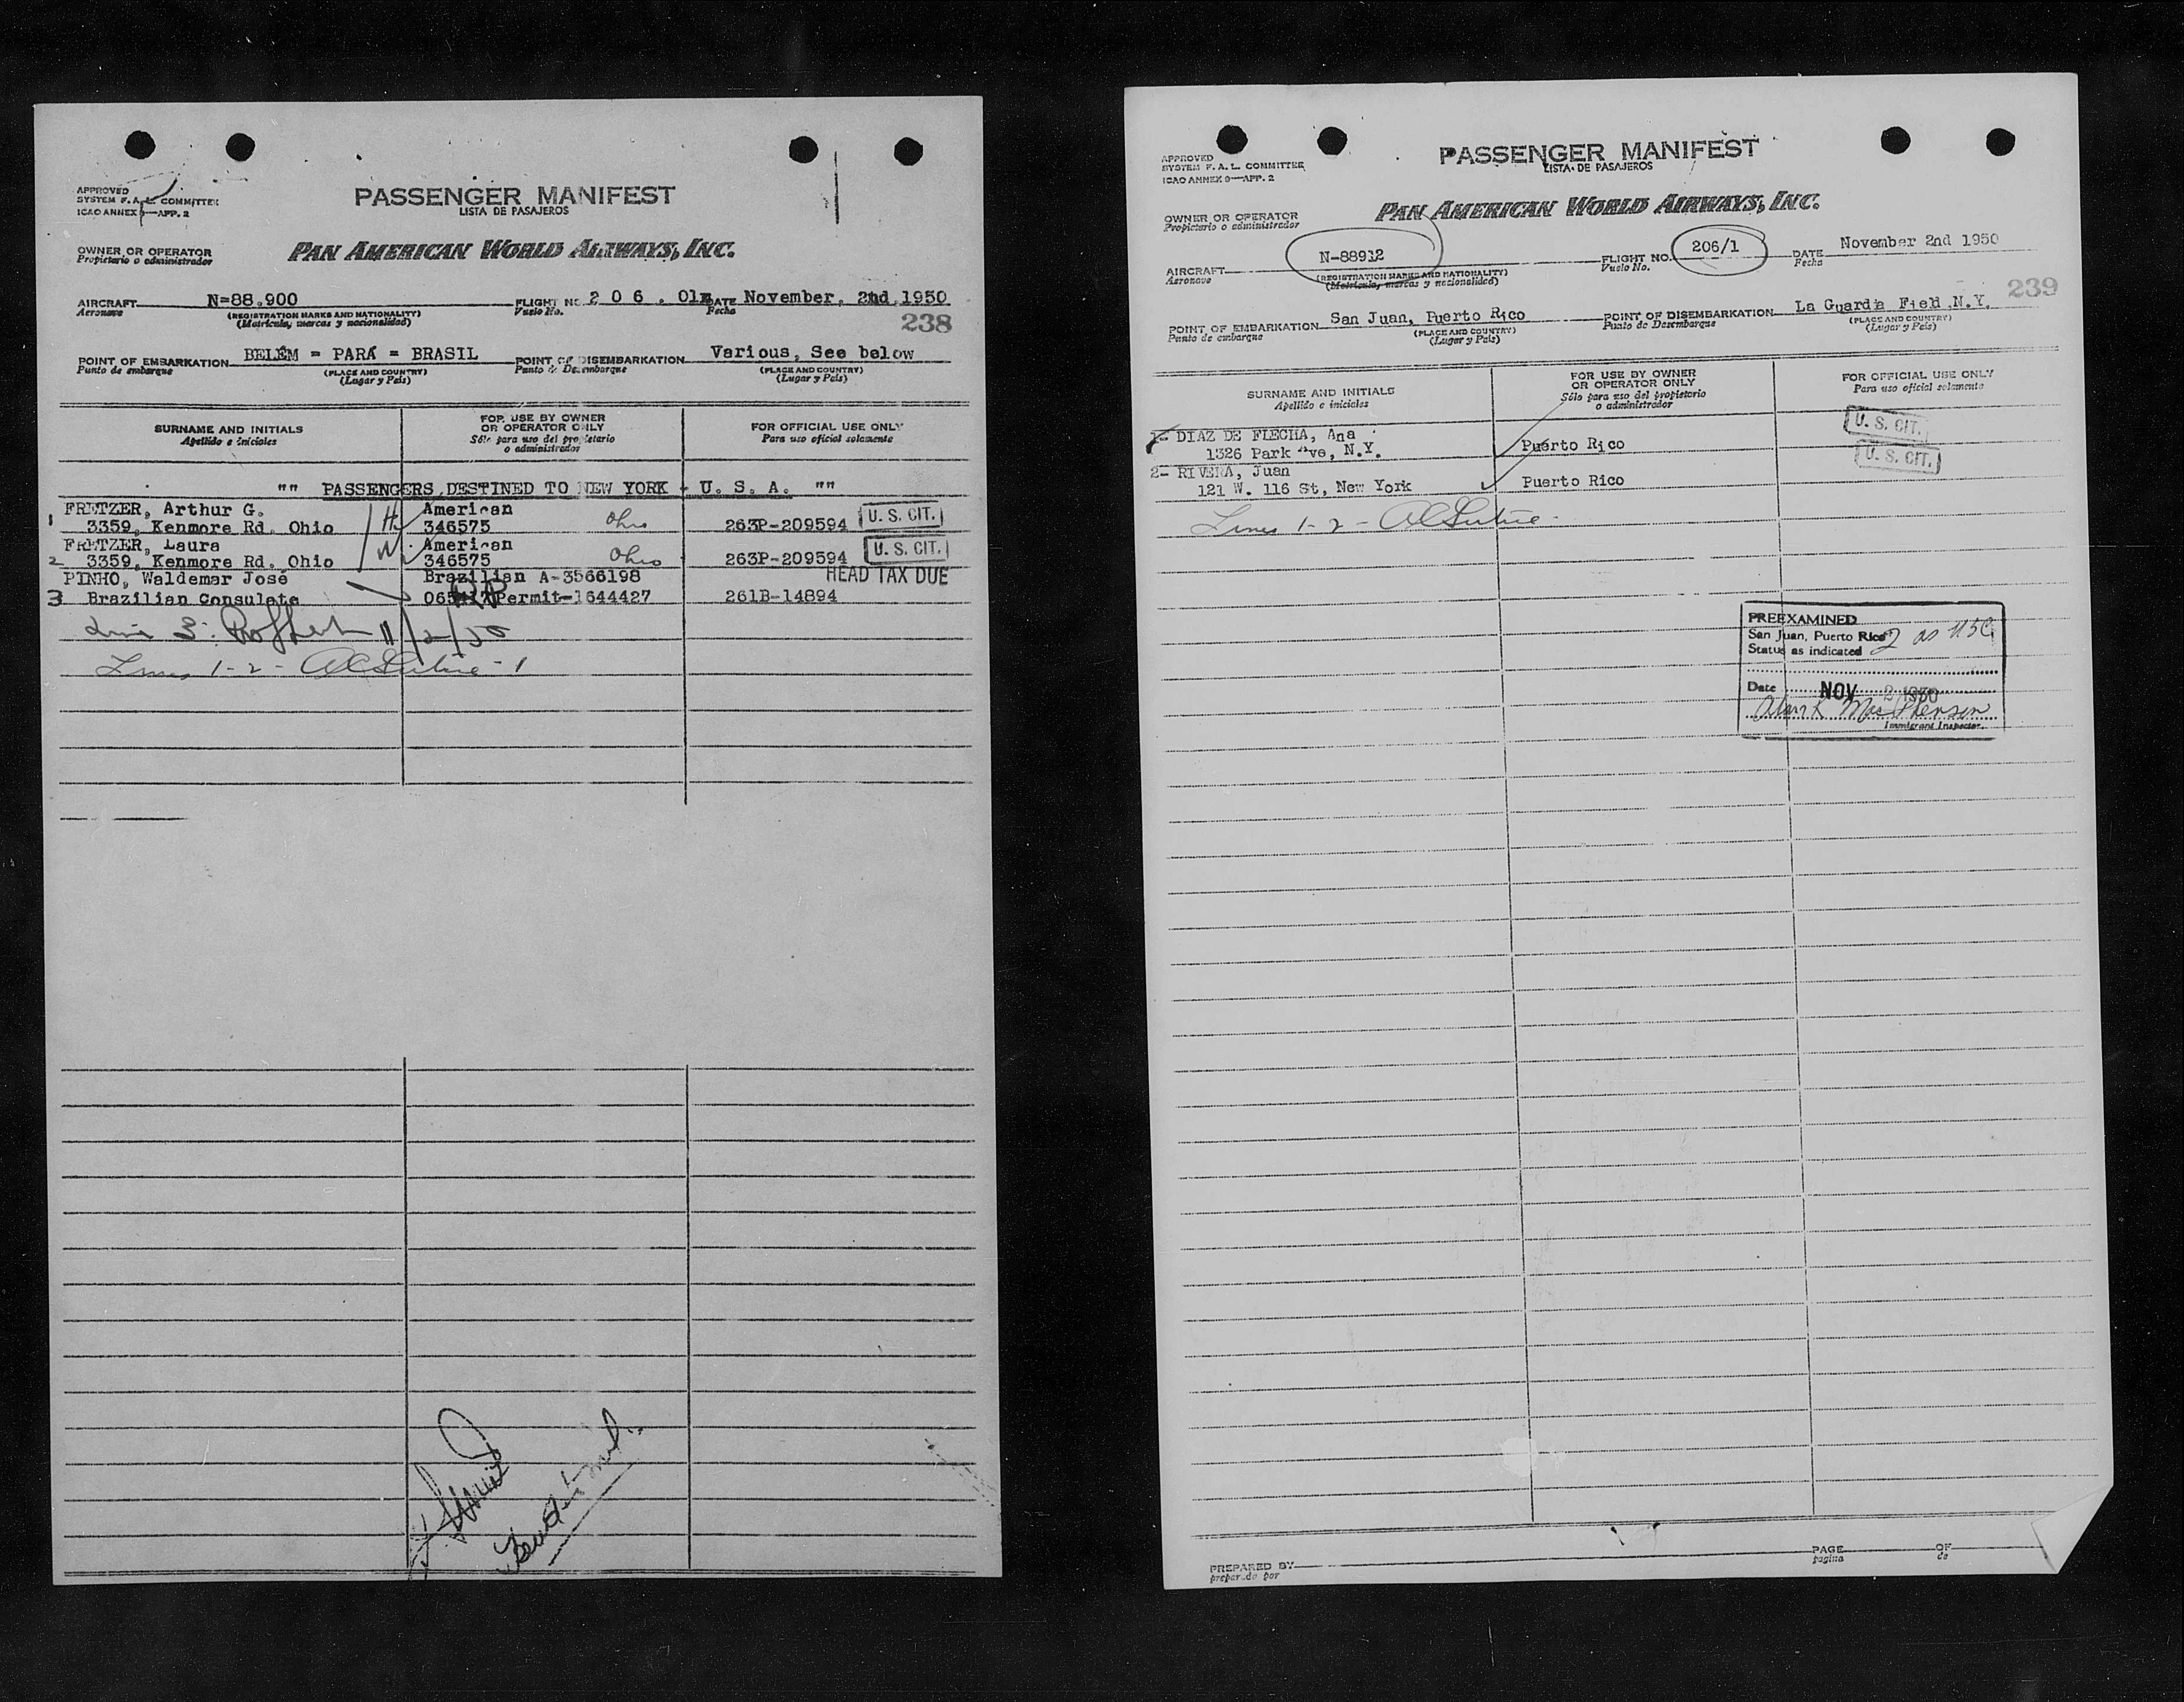 APPROVED
SYSTEM F. A. L. COMMITTEE
ICAO ANNEX 9—APP. 2
PASSENGER MANIFEST
LISTA DE PASAJEROS
OWNER OR OPERATOR
Propietario o administrador
PAN AMERICAN WORLD AIRWAYS, INC.
AIRCRAFT N=88.900 FLIGHT NO. 2 0 6 . 01 DATE November, 2nd, 1950
Aeronave (REGISTRATION MARKS AND NATIONALITY) Vuelo No. Fecha
(Matricula, marcas y nacionalidad)
238
POINT OF EMBARKATION BELÉM = PARÁ = BRASIL POINT OF DISEMBARKATION Various, See below
Punto de embarque (PLACE AND COUNTRY) Punto de Desembarque (PLACE AND COUNTRY)
(Lugar y País) (Lugar y País)
SURNAME AND INITIALS FOR USE BY OWNER OR OPERATOR ONLY FOR OFFICIAL USE ONLY
Apellido e iniciales Sólo para uso del propietario o administrador Para uso oficial solamente
"" PASSENGERS DESTINED TO NEW YORK - U. S. A. ""
FRETZER, Arthur G. American
1 3359, Kenmore Rd. Ohio H. 346575 Ohio 263P-209594 U. S. CIT.
FRETZER, Laura American
2 3359, Kenmore Rd. Ohio W. 346575 Ohio 263P-209594 U. S. CIT.
PINHO, Waldemar José Brazilian A-3566198 HEAD TAX DUE
3 Brazilian Consulate Permit-1644427 261B-14894
Line 3: 11/2/50
Lines 1-2-
APPROVED
SYSTEM F. A. L. COMMITTEE
ICAO ANNEX 9—APP. 2
PASSENGER MANIFEST
LISTA DE PASAJEROS
OWNER OR OPERATOR
Propietario o administrador
PAN AMERICAN WORLD AIRWAYS, INC.
AIRCRAFT N-88912 FLIGHT NO. 206/1 DATE November 2nd 1950
Aeronave (REGISTRATION MARKS AND NATIONALITY) Vuelo No. Fecha
(Matricula, marcas y nacionalidad)
239
POINT OF EMBARKATION San Juan, Puerto Rico POINT OF DISEMBARKATION La Guardia Field, N.Y.
Punto de embarque (PLACE AND COUNTRY) Punto de Desembarque (PLACE AND COUNTRY)
(Lugar y País) (Lugar y País)
SURNAME AND INITIALS FOR USE BY OWNER OR OPERATOR ONLY FOR OFFICIAL USE ONLY
Apellido e iniciales Sólo para uso del propietario o administrador Para uso oficial solamente
1- DIAZ DE FLECHA, Ana U. S. CIT.
1326 Park Ave, N.Y. Puerto Rico
2- RIVERA, Juan U. S. CIT.
121 W. 116 St, New York Puerto Rico
Lines 1-2-
PREEXAMINED
San Juan, Puerto Rico 2 as USC
Status as indicated
Date NOV 2 1950
Immigrant Inspector
PREPARED BY PAGE OF
preparado por pagina de